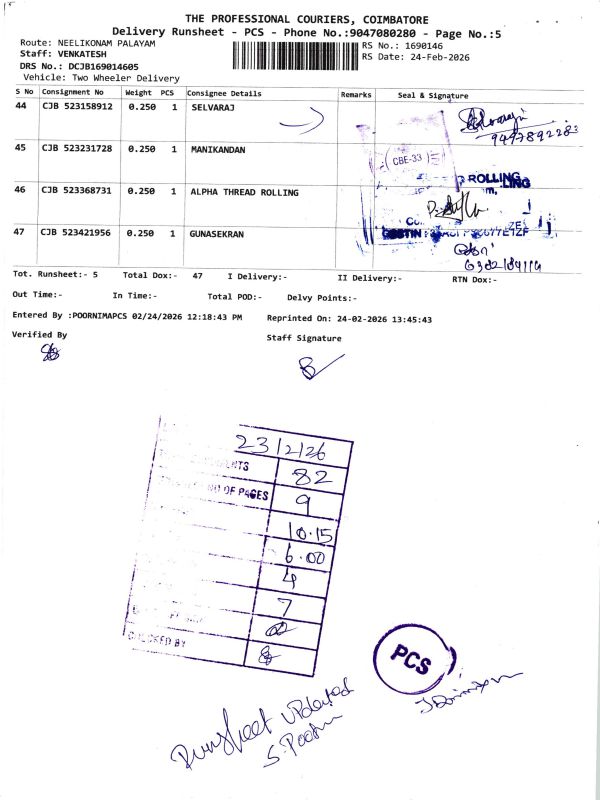 THE PROFESSIONAL COURIERS, COIMBATORE
Delivery Runsheet - PCS - Phone No.:9047080280 - Page No.:5
Route: NEELIKONAM PALAYAM
RS No.: 1690146
Staff: VENKATESH
RS Date: 24-Feb-2026
DRS No.: DCJB169014605
Vehicle: Two Wheeler Delivery
S No Consignment No Weight PCS Consignee Details Remarks Seal & Signature
44 CJB 523158912 0.250 1 SELVARAJ
45 CJB 523231728 0.250 1 MANIKANDAN
CBE-33
46 CJB 523368731 0.250 1 ALPHA THREAD ROLLING
ROLLING
47 CJB 523421956 0.250 1 GUNASEKRAN
Tot. Runsheet:- 5 Total Dox:- 47 I Delivery:- II Delivery:- RTN Dox:-
Out Time:- In Time:- Total POD:- Delvy Points:-
Entered By :POORNIMAPCS 02/24/2026 12:18:43 PM Reprinted On: 24-02-2026 13:45:43
Verified By
Staff Signature
23/2/26
82
NO OF PAGES 9
10.15
6.00
4
7
CHECKED BY
PCS
Runsheet updated
S. Poorni